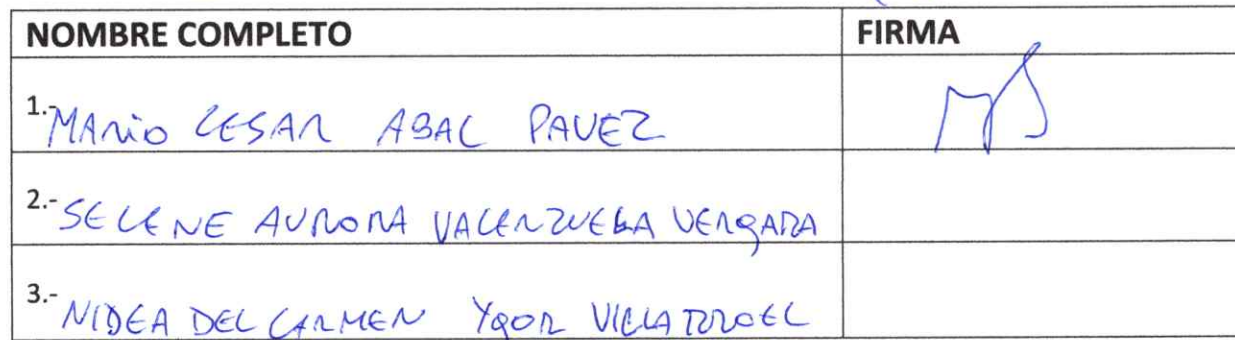 NOMBRE COMPLETO FIRMA
1.- MARIO CESAR ABAL PAVEZ
2.- SELENE AURORA VALENZUELA VERGARA
3.- NIDEA DEL CARMEN YGOR VILLARROEL